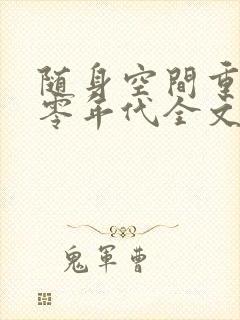 随身空間重
零年代全文
鬼軍曹